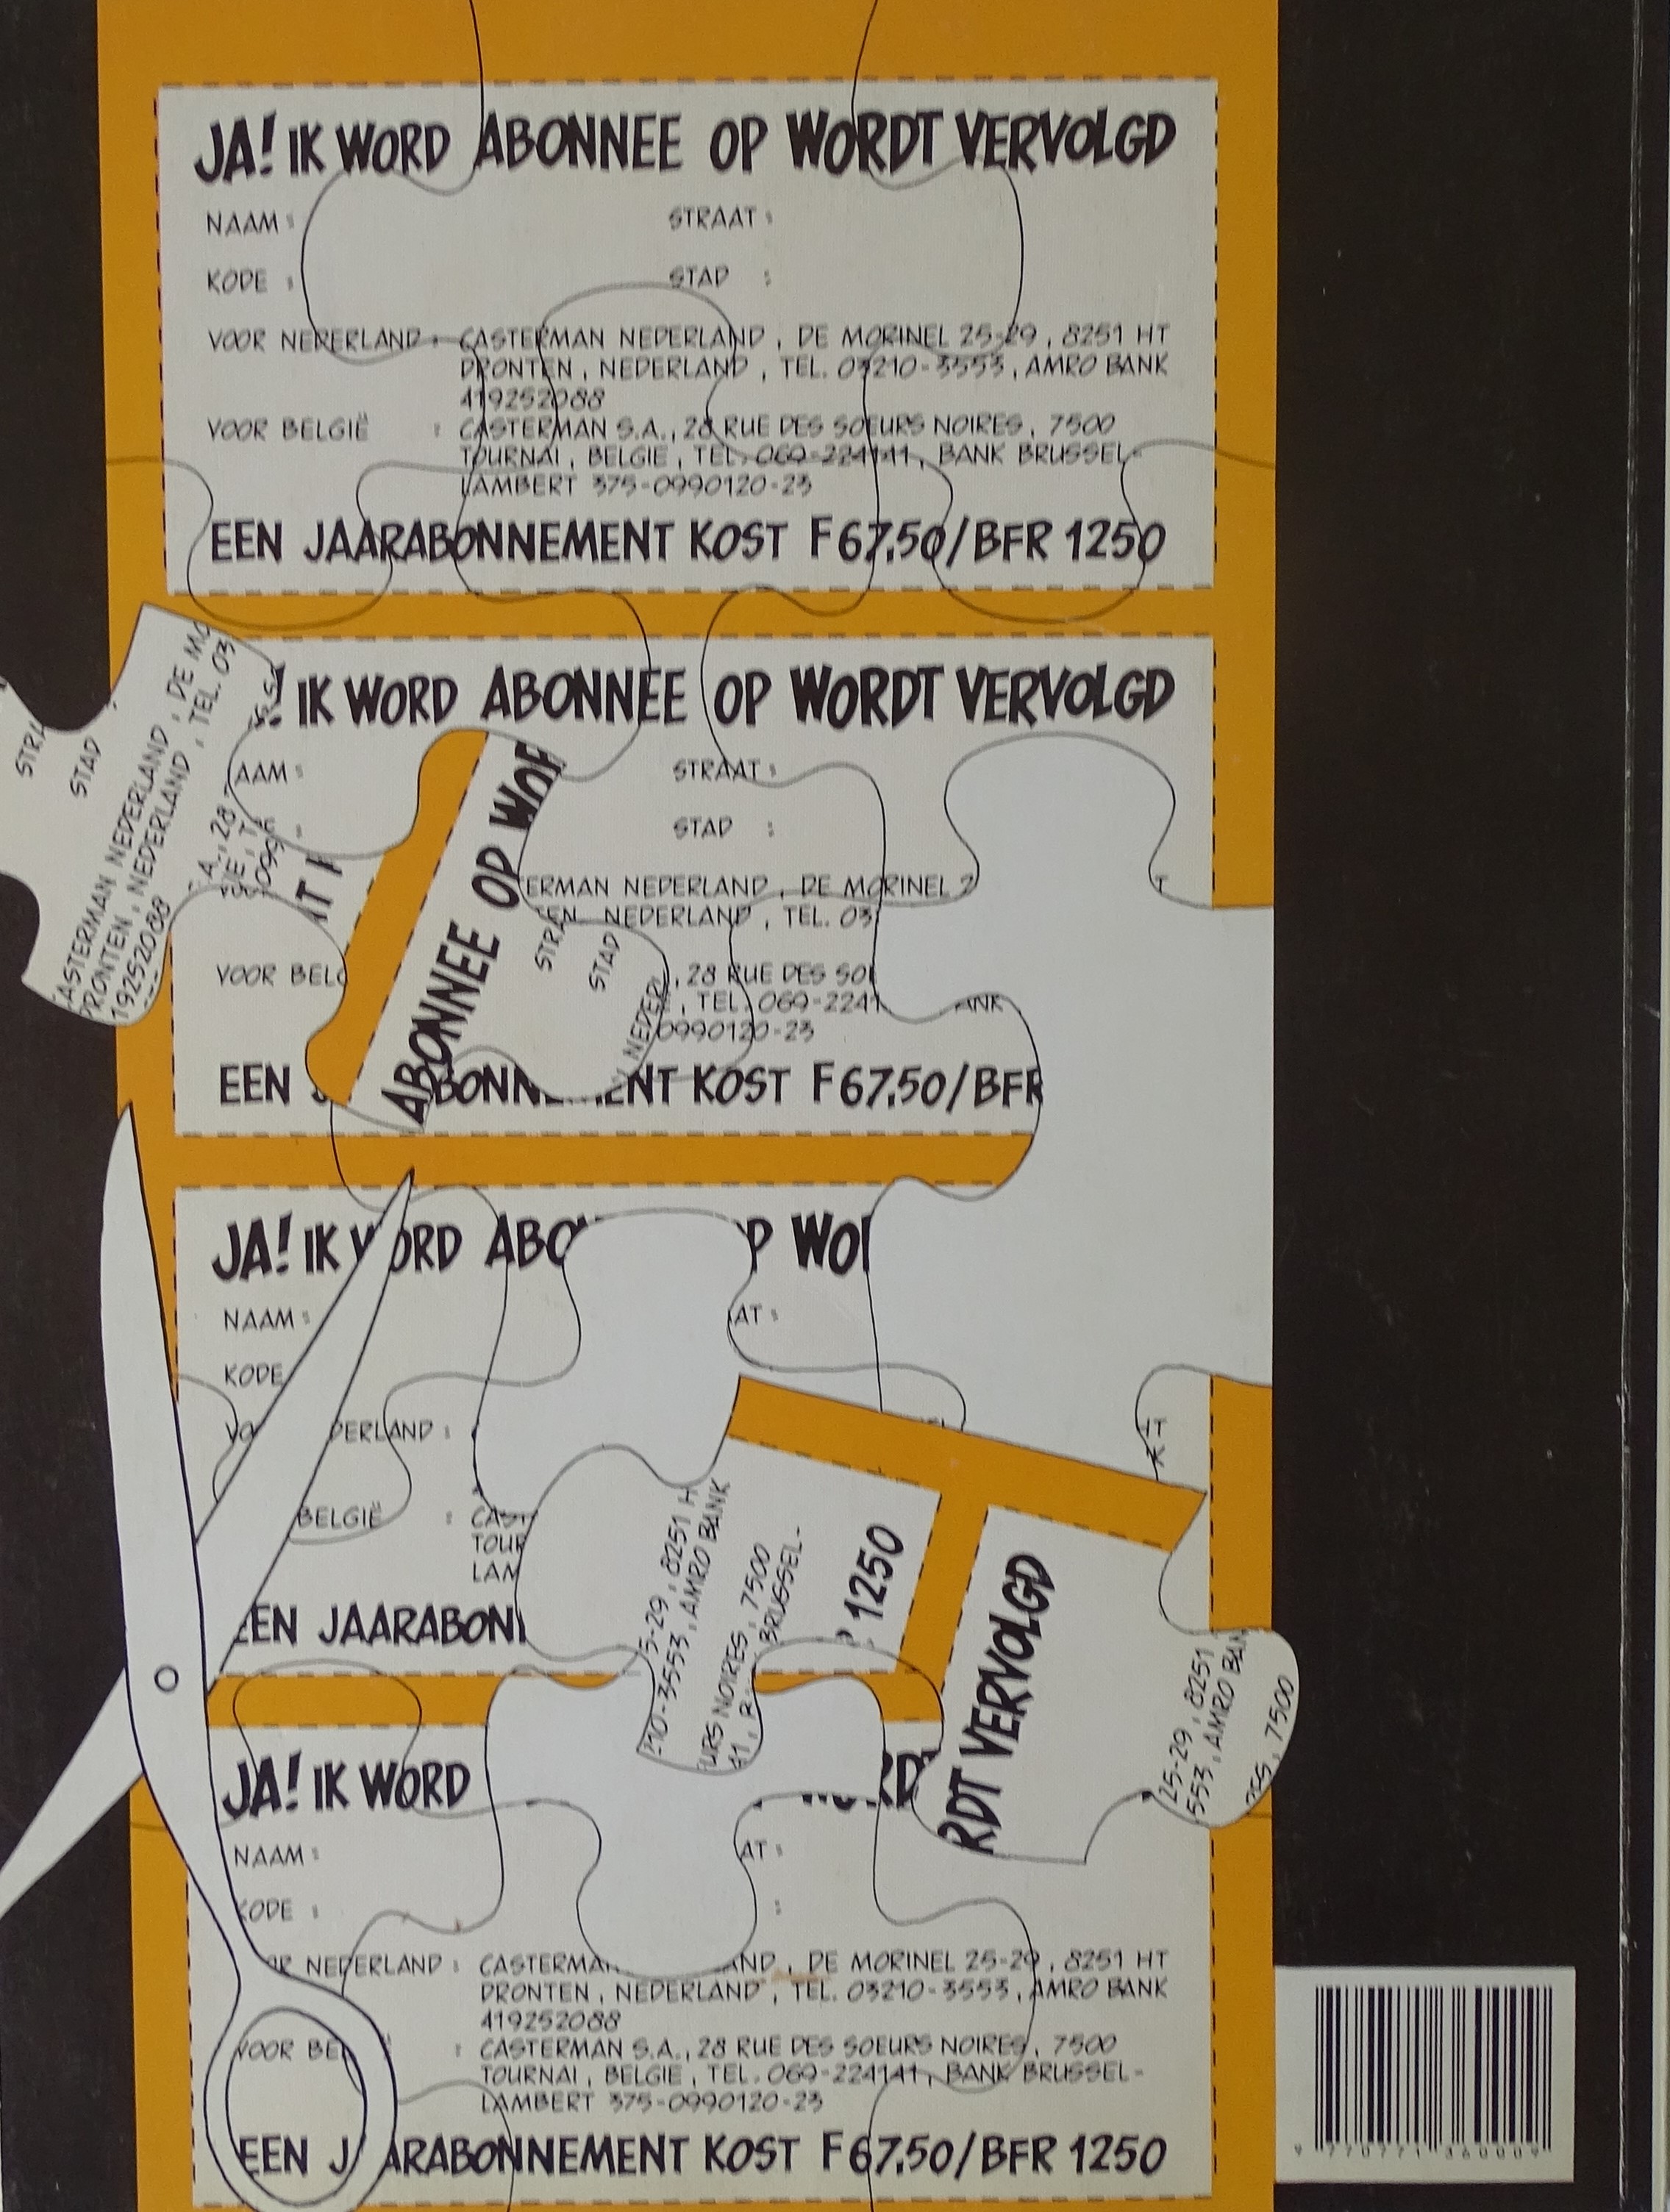 JA! IK WORD ABONNEE OP WORDT VERVOLGD
NAAM : STRAAT :
KODE : STAD :
VOOR NEDERLAND : CASTERMAN NEDERLAND, DE MORINEL 25-29, 8251 HT
DRONTEN, NEDERLAND, TEL. 03210-3553, AMRO BANK
419252088
VOOR BELGIË : CASTERMAN S.A., 28 RUE DES SOEURS NOIRES, 7500
TOURNAI, BELGIE, TEL. 069-224141, BANK BRUSSEL-
LAMBERT 375-0990120-23
EEN JAARABONNEMENT KOST F 67,50/BFR 1250
STAD
CASTERMAN NEDERLAND, DE MO
DRONTEN, NEDERLAND, TEL. 03
19252088
! IK WORD ABONNEE OP WORDT VERVOLGD
AAM : STRAAT :
STAD :
ABONNEE OP WOR
ERMAN NEDERLAND, DE MORINEL 2
TEN, NEDERLAND, TEL. 03
STRA
STAD
NEDERL
VOOR BELG , 28 RUE DES SOE
, TEL. 069-2241 BANK
0990120-23
EEN J ABONN ENT KOST F 67,50/BFR
JA! IK WORD ABO P WO
NAAM : AT :
KODE
VO DERLAND : HT
BELGIË : CAST
TOUR
LAM
EEN JAARABON
5-29, 8251 H
210-3553, AMRO BANK
EURS NOIRES, 7500
BRUSSEL-
1250
RDT VERVOLGD
25-29, 8251
553, AMRO BAN
RES, 7500
JA! IK WORD ORD
NAAM : AT :
KODE : :
OR NEDERLAND : CASTERMA AND, DE MORINEL 25-29, 8251 HT
DRONTEN, NEDERLAND, TEL. 03210-3553, AMRO BANK
419252088
VOOR BEL : CASTERMAN S.A., 28 RUE DES SOEURS NOIRES, 7500
TOURNAI, BELGIE, TEL. 069-224141, BANK BRUSSEL-
LAMBERT 375-0990120-23
EEN JAARABONNEMENT KOST F 67,50/BFR 1250
9 770771 360009